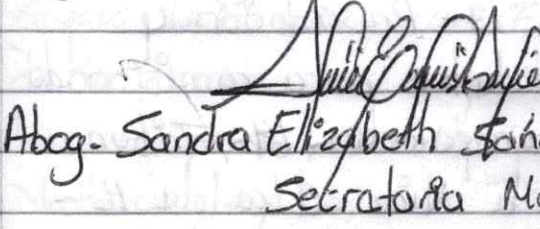 Abog. Sandra Elizabeth Sán
Secretaria M